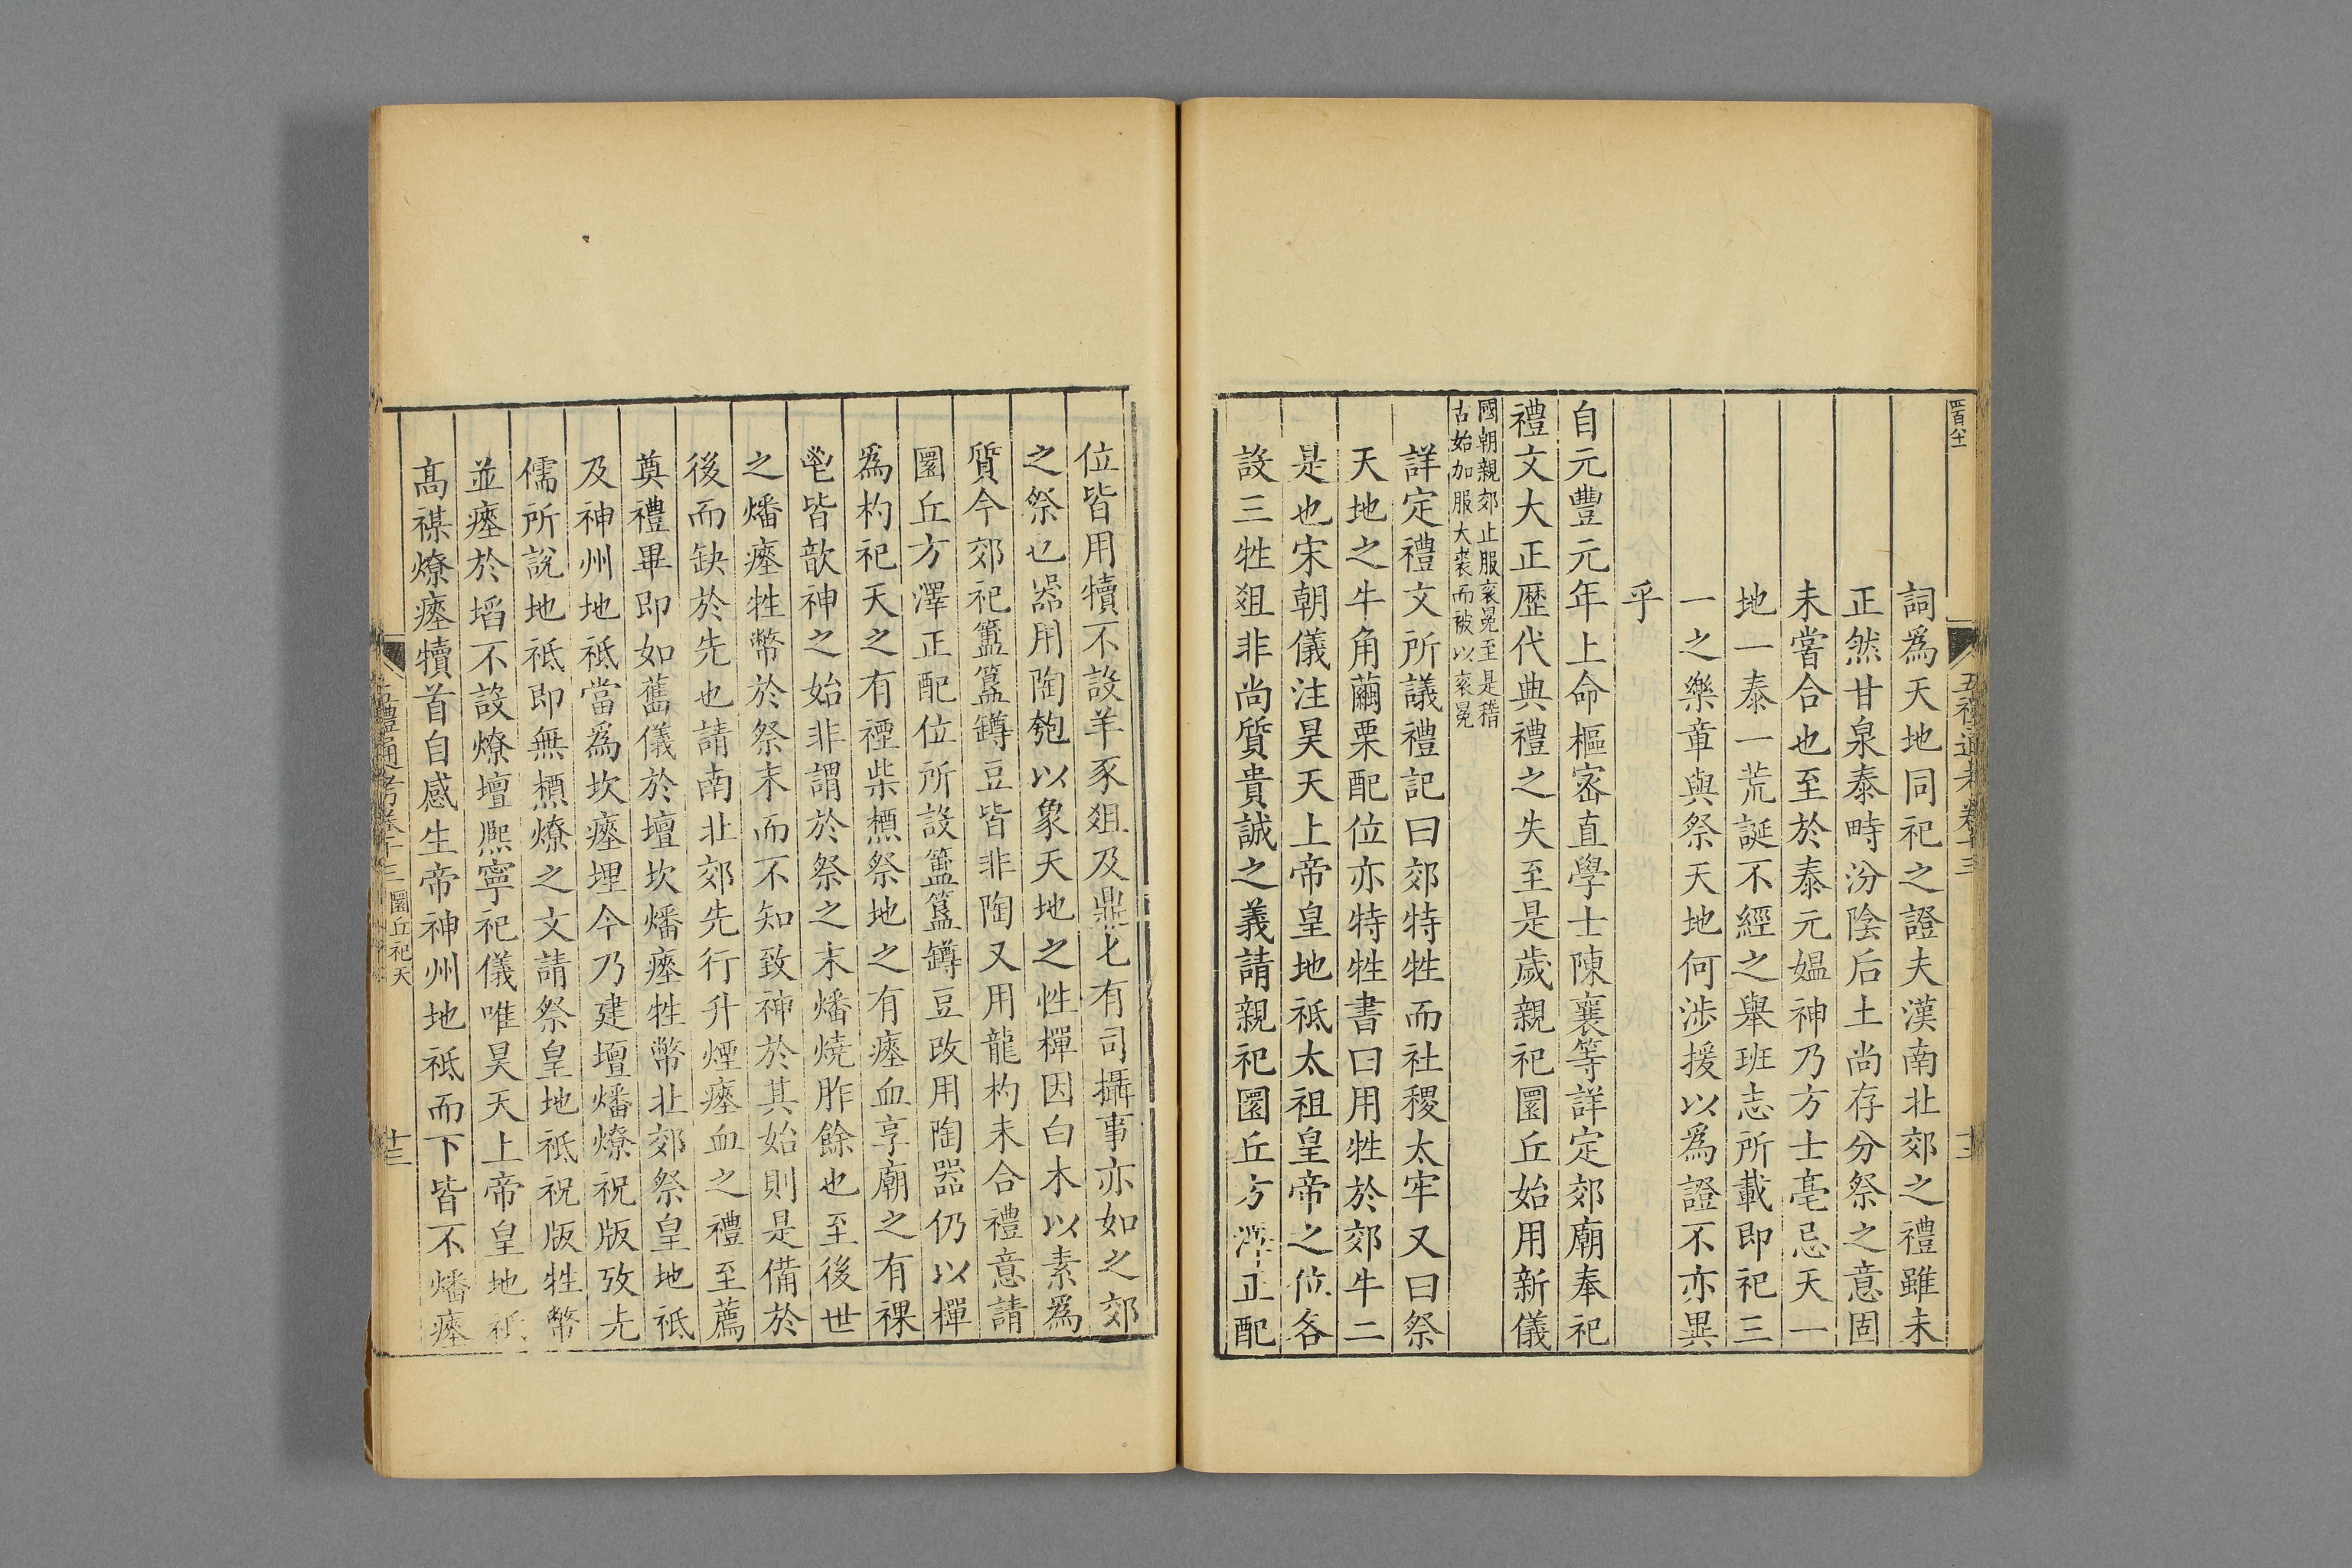 四百八十一
五禮通考卷十三
十二
詞爲天地同祀之證夫漢南北郊之禮雖未
正然甘泉泰畤汾陰后土尚存分祭之意固
未嘗合也至於泰元媼神乃方士亳忌天一
地一泰一荒誕不經之舉班志所載即祀三
一之樂章與祭天地何涉援以爲證不亦異
乎
自元豐元年上命樞宻直學士陳襄等詳定郊廟奉祀
禮文大正歴代典禮之失至是歲親祀圜丘始用新儀
國朝親郊止服衮冕至是稽
古始加服大裘而被以衮冕
詳定禮文所議禮記曰郊特牲而社稷太牢又曰祭
天地之牛角繭栗配位亦特牲書曰用牲於郊牛二
是也宋朝儀注昊天上帝皇地祗太祖皇帝之位各
設三牲爼非尚質貴誠之義請親祀圜丘方澤正配
位皆用犢不設羊豕爼及鼎匕有司攝事亦如之郊
之祭也器用陶匏以象天地之性樿因白木以素爲
質今郊祀簠簋罇豆皆非陶又用龍杓未合禮意請
圜丘方澤正配位所設簠簋罇豆改用陶器仍以樿
爲杓祀天之有禋柴槱祭地之有瘞血享廟之有祼
鬯皆歆神之始非謂於祭之末燔燒胙餘也至後世
之燔瘞牲幣於祭末而不知致神於其始則是備於
後而缺於先也請南北郊先行升煙瘞血之禮至薦
奠禮畢即如舊儀於壇坎燔瘞牲幣北郊祭皇地祗
及神州地祗當爲坎瘞埋今乃建壇燔燎祝版攷先
儒所說地祗即無槱燎之文請祭皇地祗祝版牲幣
並瘞於埳不設燎壇熙寧祀儀唯昊天上帝皇地祗
髙禖燎瘞犢首自感生帝神州地祗而下皆不燔瘞
五禮通考卷十三 圜丘祀天
十三